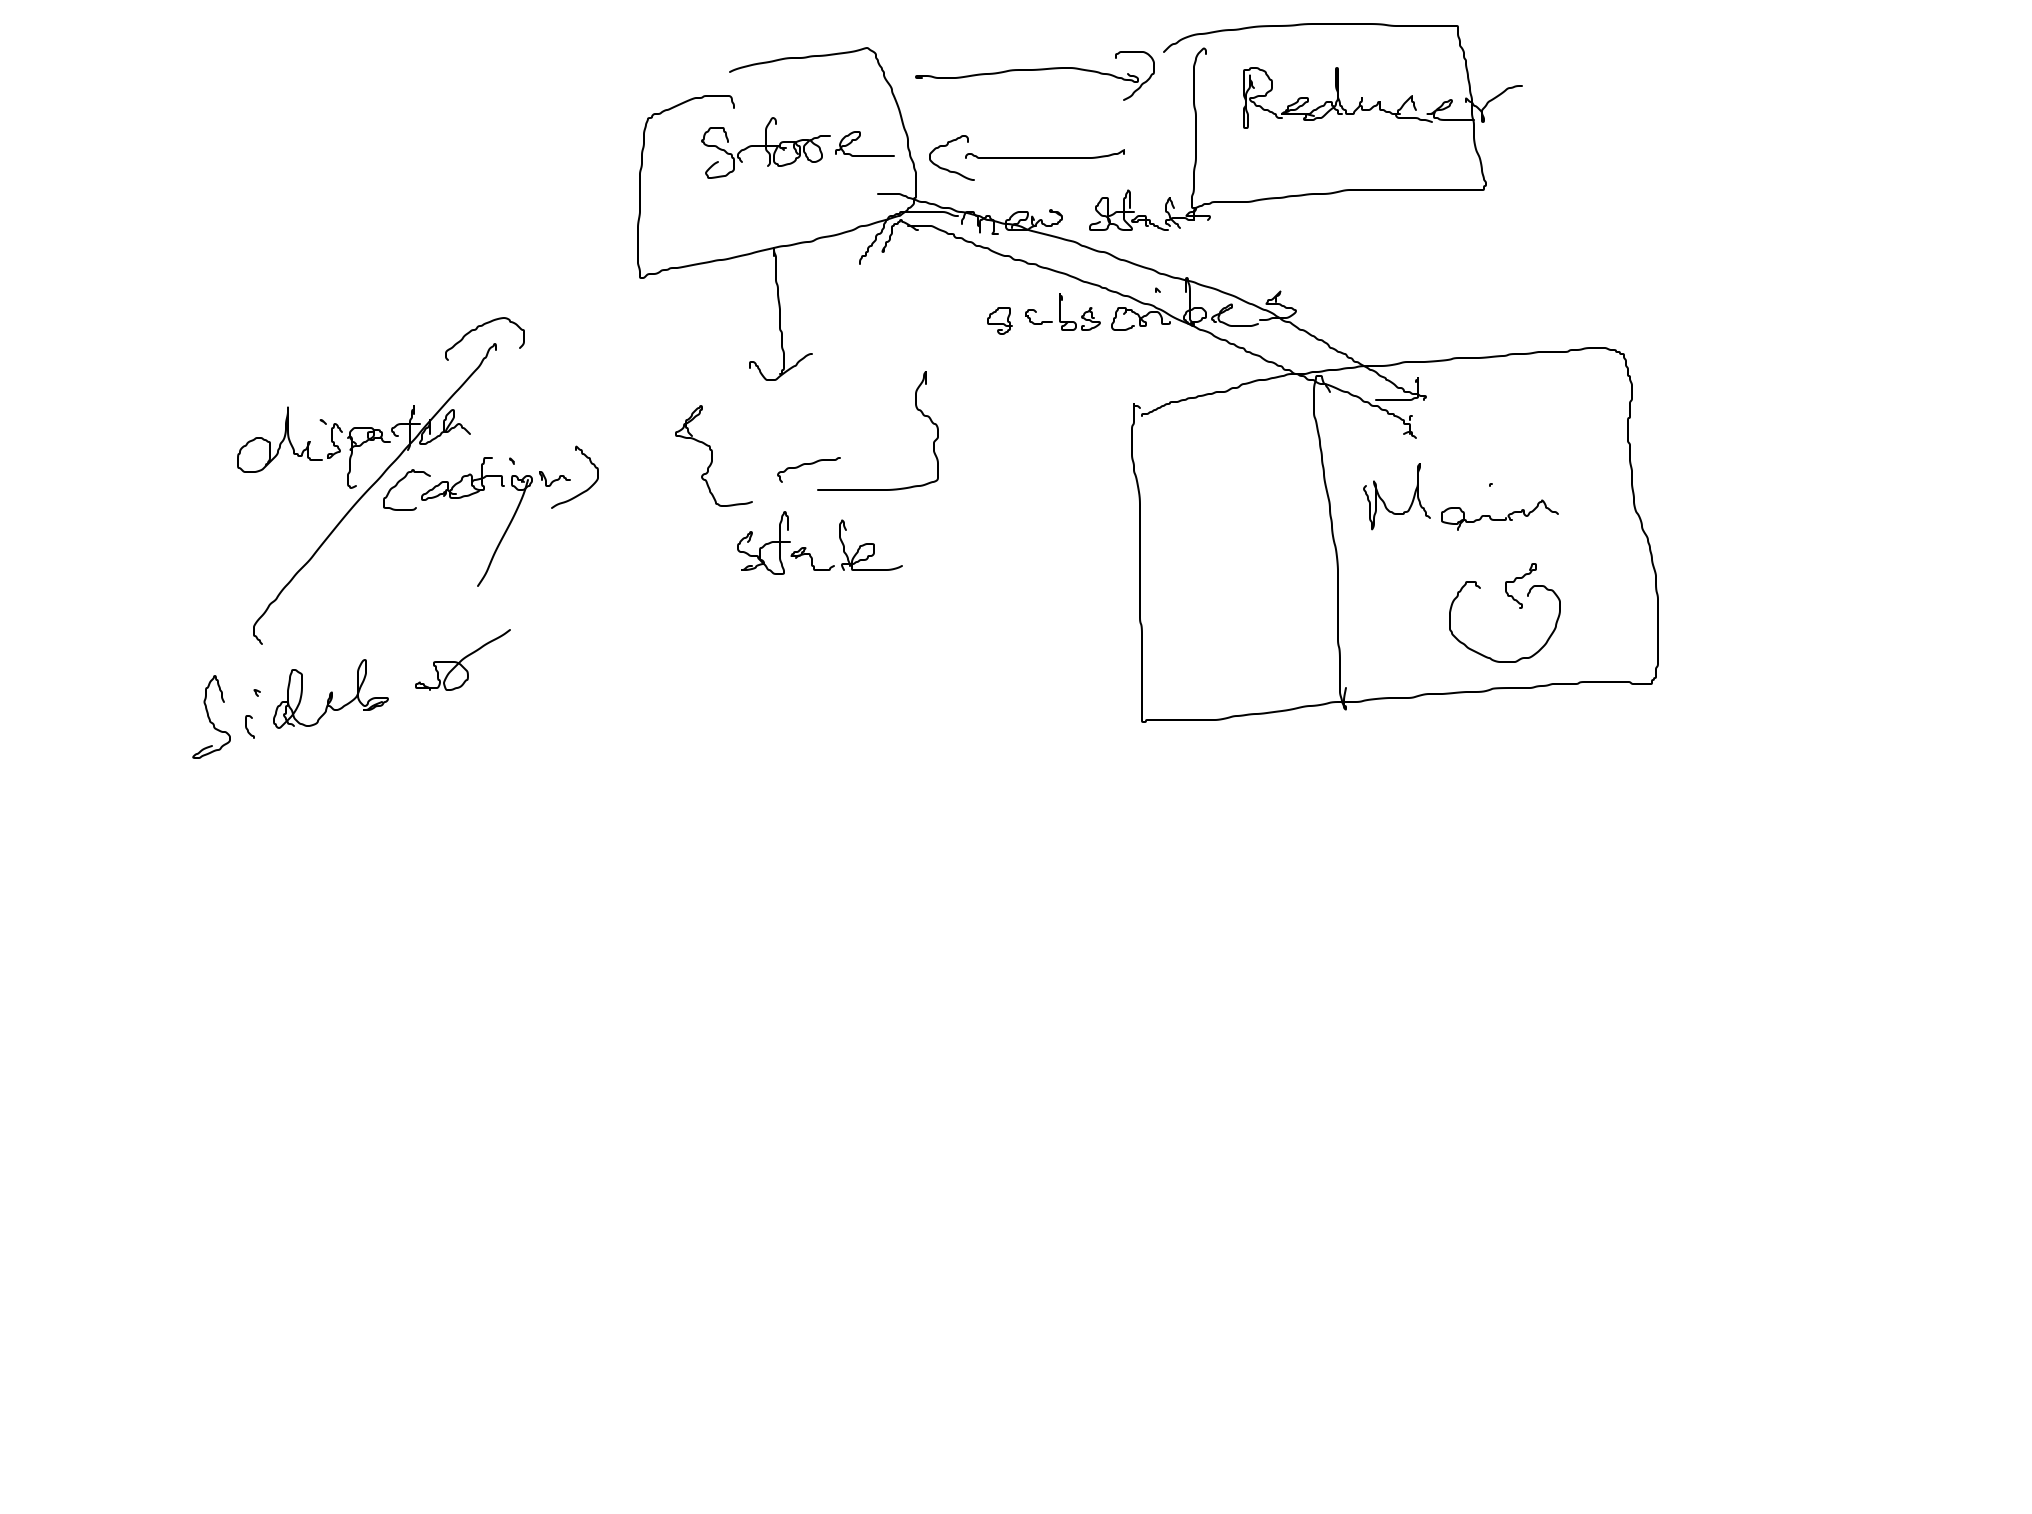 Store
Reducer
new state
subscribes
dispatch
(action)
state
Main
Sidebar